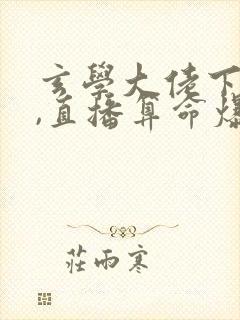 玄學大佬下
,直播算命爆
莊雨寒